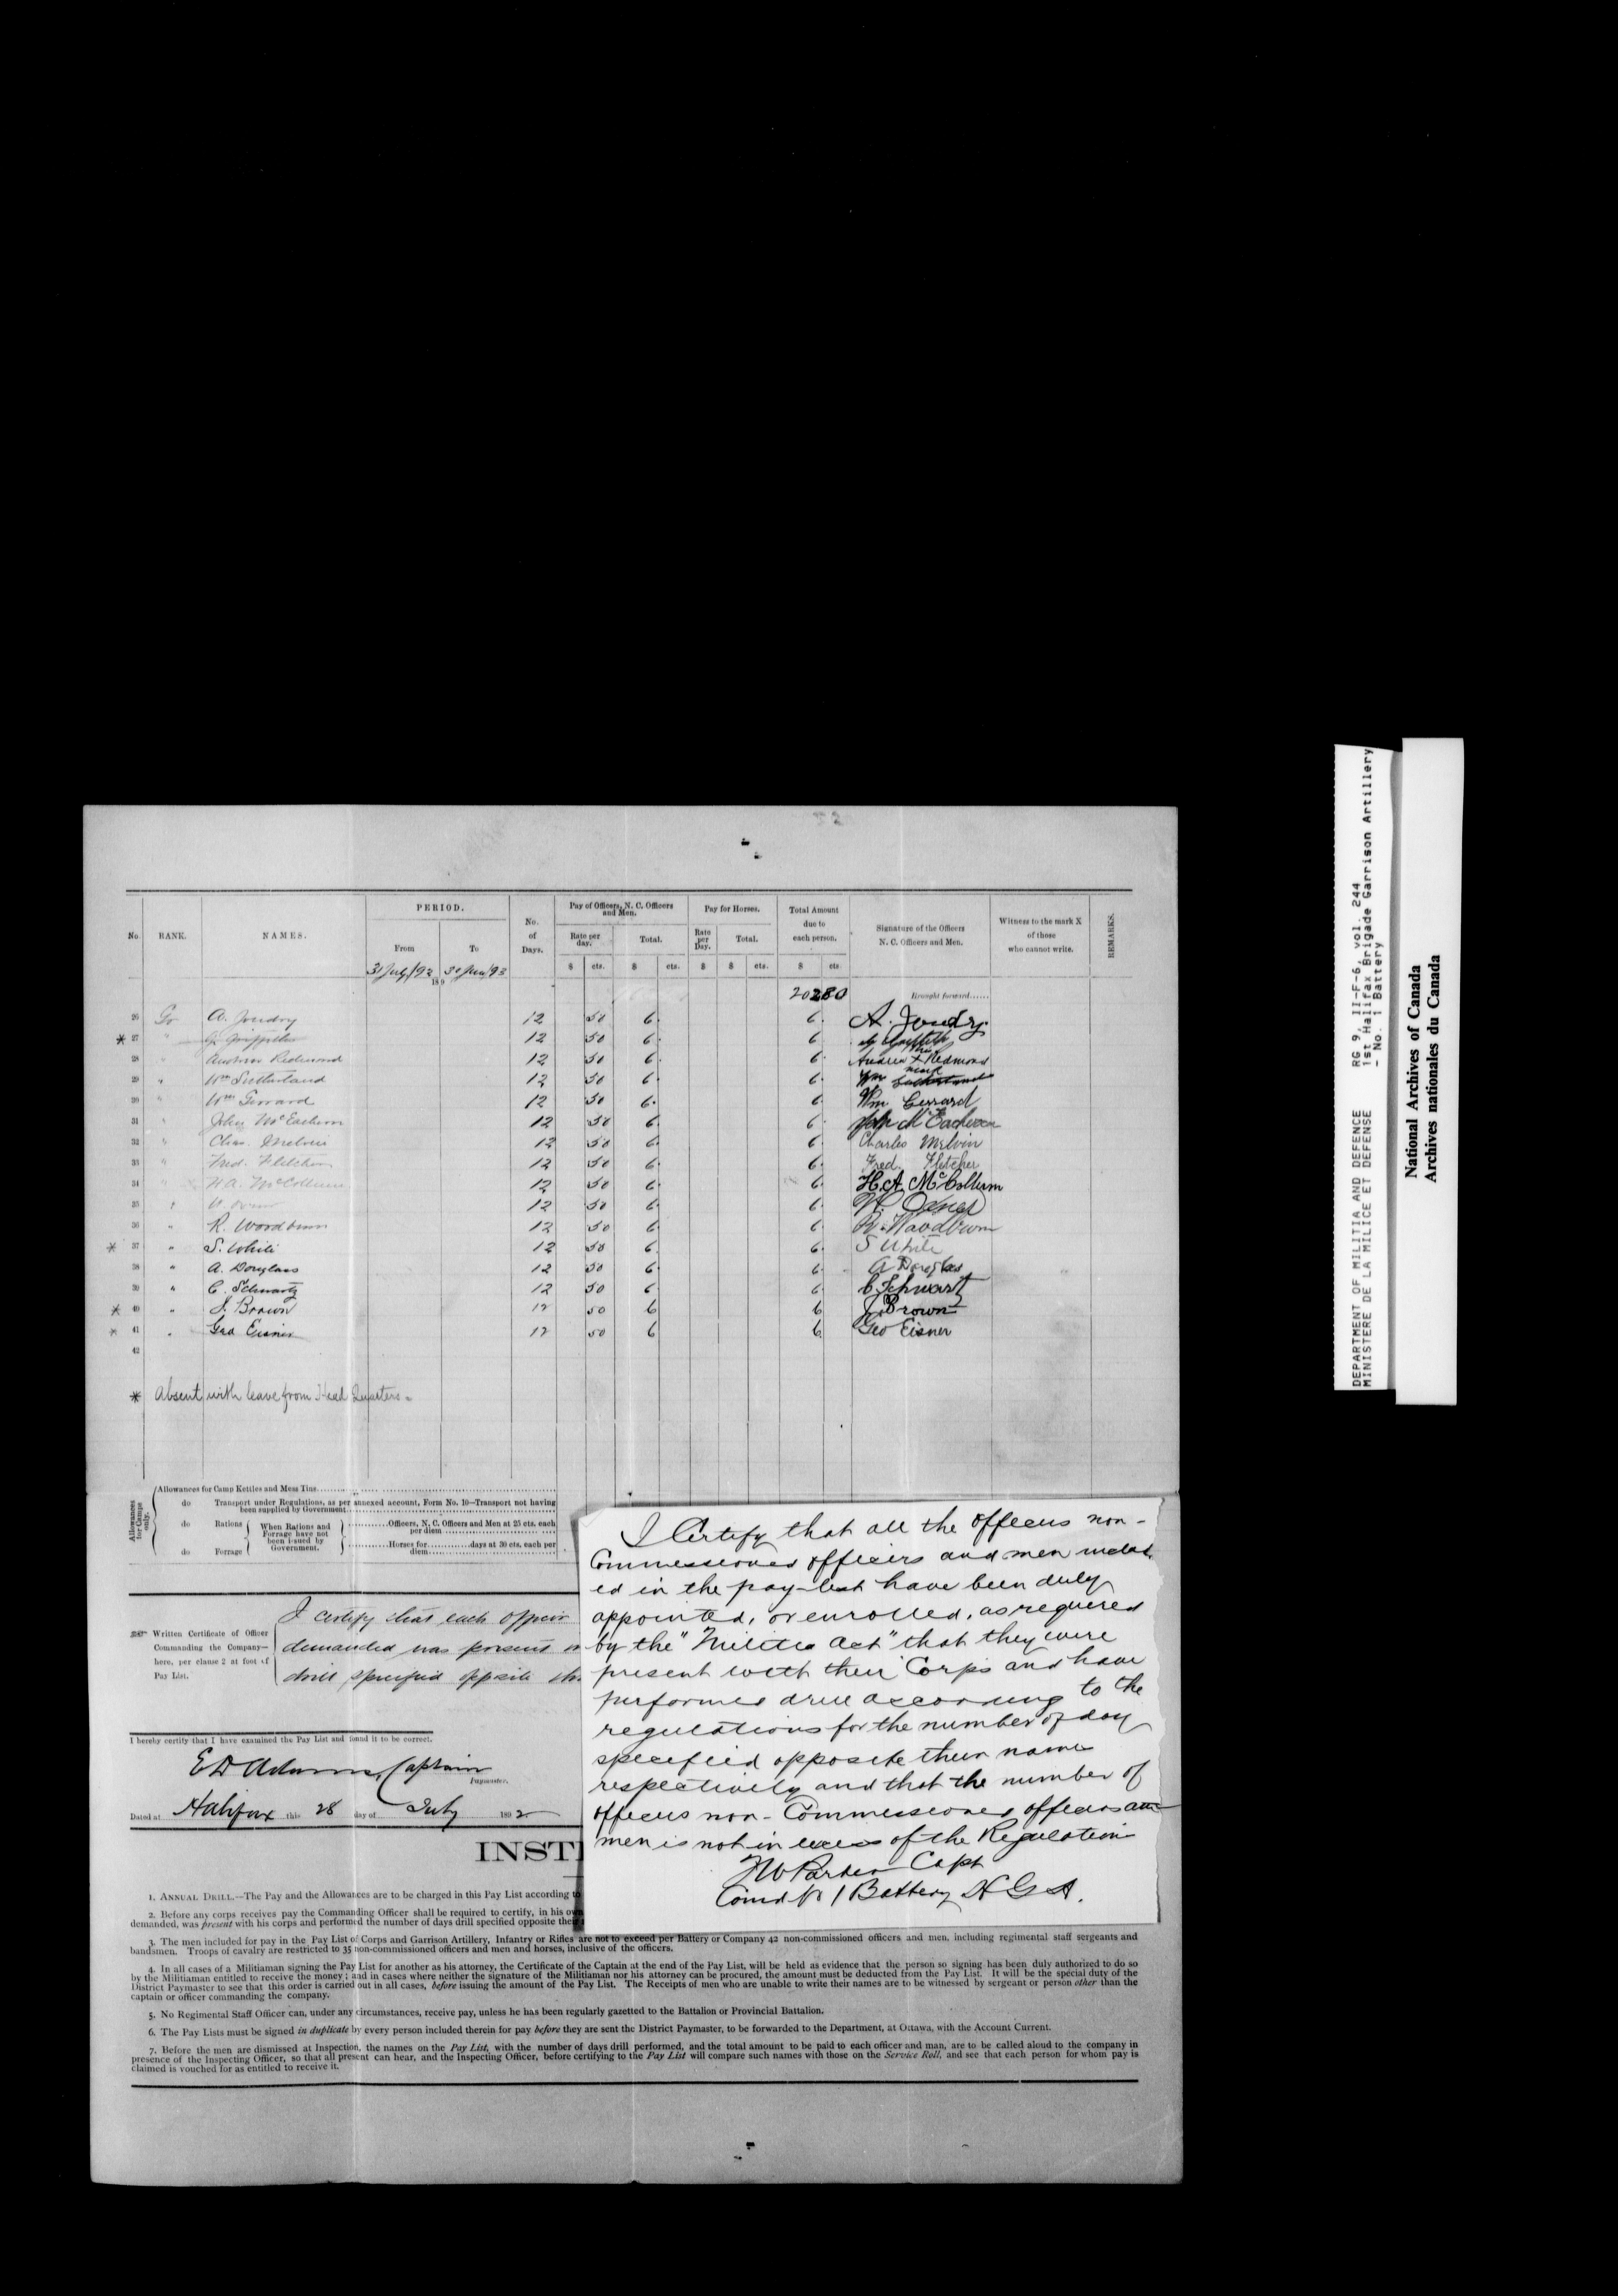 PERIOD.
Pay of Officers, N. C. Officers and Men.
Pay for Horses.
Total Amount due to each person.
No.
RANK.
NAMES.
From
To
No. of Days.
Rate per day.
Total.
Rate per Day.
Total.
Signature of the Officers N. C. Officers and Men.
Witness to the mark X of those who cannot write.
REMARKS.
$ cts. $ cts. $ $ cts. $ cts
31 July/92 30 Jun/93
189
20280 Brought forward......
26 Gr A. Joudry 12 50 6. 6. A. Joudry
* 27 " J. Griffiths 12 50 6. 6 J Griffith
28 " Andrew Redmond 12 50 6. 6. Andrew his X mark Redmond
29 " Wm Sutherland 12 50 6. 6. Wm Sutherland
30 " Wm Gerrard 12 50 6. 6 Wm Gerrard
31 " John McEachern 12 50 6 6. John McEachern
32 " Chas. Melvin 12 50 6 6 Charles Melvin
33 " Fred. Fletcher 12 50 6. 6. Fred. Fletcher
34 " H.A. McCollum 12 50 6. 6. H.A. McCollum
35 " 12 50 6. 6.
36 " R. Woodburn 12 50 6 6 R. Woodburn
* 37 " S. White 12 50 6. 6. S White
38 " A. Douglass 12 50 6. 6. A Douglas
39 " C. Schwartz 12 50 6. 6. C Schwartz
* 40 " J. Brown 12 50 6 6 J. Brown
* 41 " Geo Eisner 12 50 6 6 Geo Eisner
42
* Absent with leave from Head Quarters.
Allowances for Camps only.
Allowances for Camp Kettles and Mess Tins
do Transport under Regulations, as per annexed account, Form No. 10—Transport not having been supplied by Government
do Rations
When Rations and Forrage have not been issued by Government.
Officers, N. C. Officers and Men at 25 cts. each per diem
do Forrage
Horses for............days at 30 cts. each per diem
Written Certificate of Officer Commanding the Company—here, per clause 2 at foot of Pay List.
I certify that each officer
demanded was present
drill specified opposite
I hereby certify that I have examined the Pay List and found it to be correct.
E D Adams, Captain
Paymaster.
Dated at Halifax this 28 day of July 1892
I Certify that all the officers non-
Commissioned officers and men includ
ed in the pay-list have been duly
appointed, or enrolled, as required
by the "Militia Act" that they were
present with their Corps and have
performed drill according to the
regulations for the number of day
specified opposite their name
respectively and that the number of
officers non-Commissioned officers and
men is not in excess of the Regulation
Parker Capt
Comd No 1 Battery H G A.
INST
1. ANNUAL DRILL.—The Pay and the Allowances are to be charged in this Pay List according to
2. Before any corps receives pay the Commanding Officer shall be required to certify, in his own
demanded, was present with his corps and performed the number of days drill specified opposite their
3. The men included for pay in the Pay List of Corps and Garrison Artillery, Infantry or Rifles are not to exceed per Battery or Company 42 non-commissioned officers and men, including regimental staff sergeants and
bandsmen. Troops of cavalry are restricted to 35 non-commissioned officers and men and horses, inclusive of the officers.
4. In all cases of a Militiaman signing the Pay List for another as his attorney, the Certificate of the Captain at the end of the Pay List, will be held as evidence that the person so signing has been duly authorized to do so
by the Militiaman entitled to receive the money; and in cases where neither the signature of the Militiaman nor his attorney can be procured, the amount must be deducted from the Pay List. It will be the special duty of the
District Paymaster to see that this order is carried out in all cases, before issuing the amount of the Pay List. The Receipts of men who are unable to write their names are to be witnessed by sergeant or person other than the
captain or officer commanding the company.
5. No Regimental Staff Officer can, under any circumstances, receive pay, unless he has been regularly gazetted to the Battalion or Provincial Battalion.
6. The Pay Lists must be signed in duplicate by every person included therein for pay before they are sent the District Paymaster, to be forwarded to the Department, at Ottawa, with the Account Current.
7. Before the men are dismissed at Inspection, the names on the Pay List, with the number of days drill performed, and the total amount to be paid to each officer and man, are to be called aloud to the company in
presence of the Inspecting Officer, so that all present can hear, and the Inspecting Officer, before certifying to the Pay List will compare such names with those on the Service Roll, and see that each person for whom pay is
claimed is vouched for as entitled to receive it.
DEPARTMENT OF MILITIA AND DEFENCE RG 9, II-F-6, vol. 244
MINISTERE DE LA MILICE ET DEFENSE 1st Halifax Brigade Garrison Artillery
- No. 1 Battery
National Archives of Canada
Archives nationales du Canada